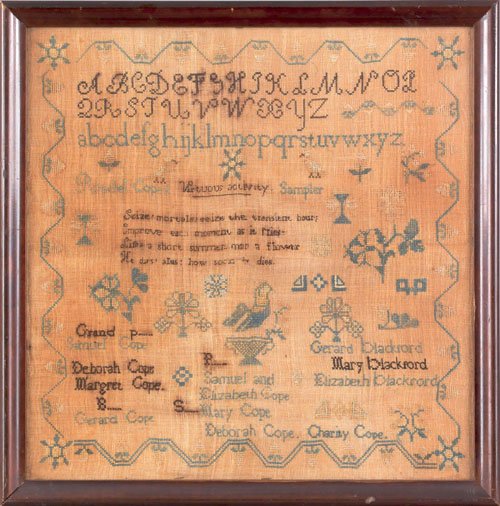 ABCDEFGHIKLMNOP
QRSTUVWXYZ
abcdefghijklmnopqrstuvwxyz
Cope Virtuous activity. Sampler
Seize mortals seize the transient hour;
Improve each moment as it flies
Life a short summer man a flower
He dies alas: how soon he dies.
Grand p
Samuel Cope
Deborah Cope
Margret Cope.
B
Gerard Cope
P
Samuel and
Elizabeth Cope
S Mary Cope
Deborah Cope. Charity Cope.
Gerard Blackford
Mary Blackford
Elizabeth Blackford